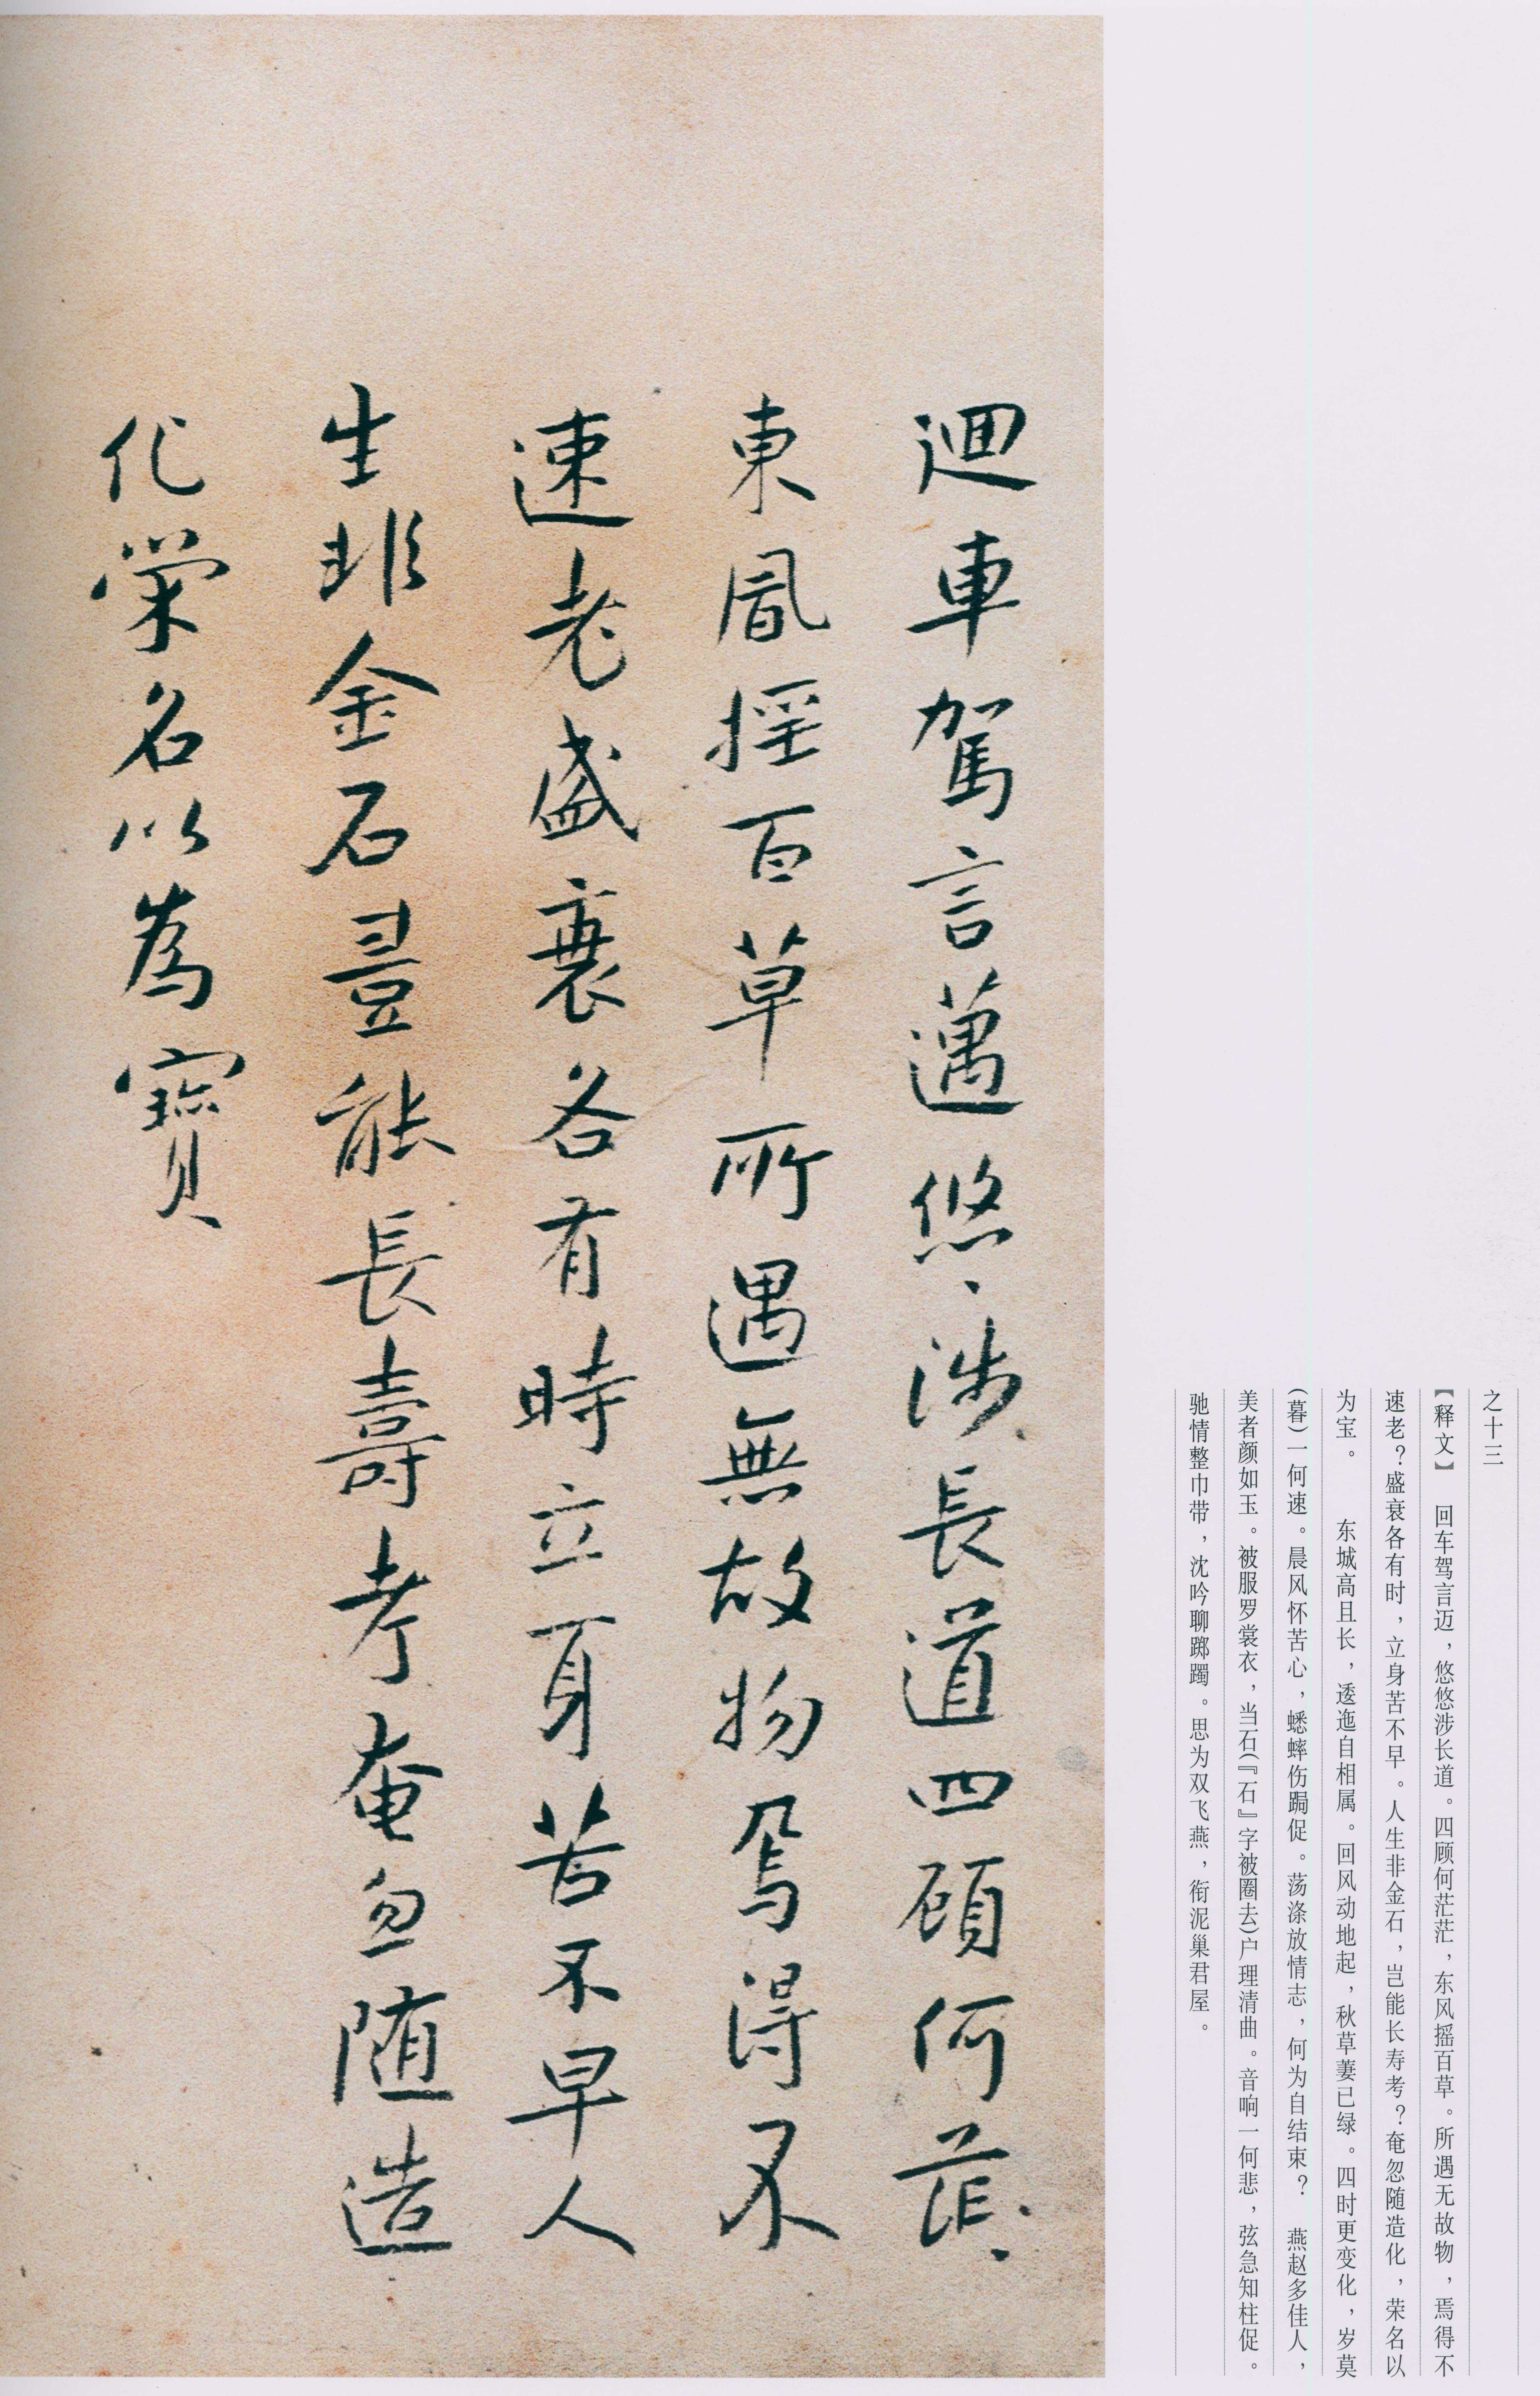 之十三
【释文】 回车驾言迈，悠悠涉长道。四顾何茫茫，东风摇百草。所遇无故物，焉得不
速老？盛衰各有时，立身苦不早。人生非金石，岂能长寿考？奄忽随造化，荣名以
为宝。 东城高且长，逶迤自相属。回风动地起，秋草萋已绿。四时更变化，岁莫
（暮）一何速。晨风怀苦心，蟋蟀伤局促。荡涤放情志，何为自结束？ 燕赵多佳人，
美者颜如玉。被服罗裳衣，当石（『石』字被圈去）户理清曲。音响一何悲，弦急知柱促。
驰情整巾带，沈吟聊踯躅。思为双飞燕，衔泥巢君屋。
迴車駕言邁悠、涉長道四顧何茫、
東風摇百草所遇無故物焉得不
速老盛衰各有時立身苦不早人
生非金石豈能長壽考奄忽随造
化榮名以為寶